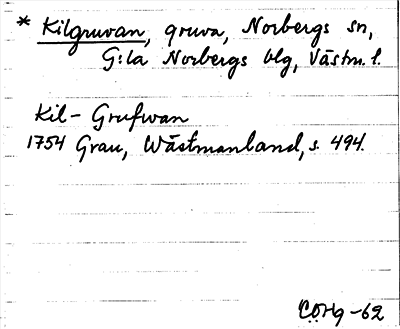 * Kilgruvan, gruva, Norbergs sn,
G:la Norbergs blg, Västm. l.
Kil-Grufwan
1754 Grau, Wästmanland, s. 494.
CÖHg -62